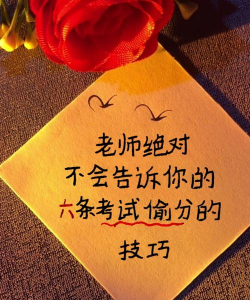 老师绝对
不会告诉你的
六条考试偷分的
技巧